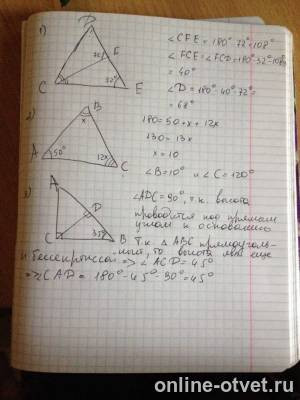 1)
D
72°
F
C
32°
E
∠CFE = 180°-72°=108°
∠FCE = ∠FCD = 180°-32°-108°
= 40°
∠D = 180°-40°-72°
= 68°
2)
B
x
A
50°
12x
C
180 = 50 + x + 12x
130 = 13x
x = 10
∠B = 10° и ∠C = 120°
3)
A
D
C
B
∠ADC = 90°, т.к. высота
проводится под прямым
углом к основанию
Т.к. △ABC прямоуголь-
ный, то высота
и биссектрисса => ∠ACD = 45°
=> ∠CAD = 180°-45°-90°=45°
online-otvet.ru